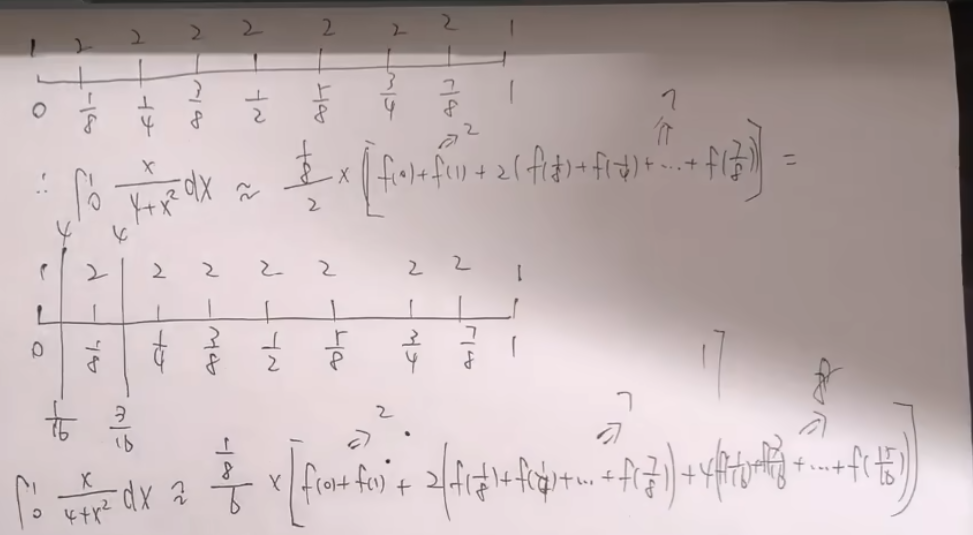 1 2 2 2 2 2 2 2 1
0 1/8 1/4 3/8 1/2 5/8 3/4 7/8 1
2 7
∴ ∫₀¹ x/(4+x²) dx ≈ (1/8)/2 × [f(0)+f(1)+2(f(1/8)+f(1/4)+...+f(7/8))] =
4 4
1 2 2 2 2 2 2 2 1
0 1/8 1/4 3/8 1/2 5/8 3/4 7/8 1
1/16 3/16
2 7 17 8
∫₀¹ x/(4+x²) dx ≈ (1/8)/6 × [f(0)+f(1)+2(f(1/8)+f(1/4)+...+f(7/8))+4(f(1/16)+f(3/16)+...+f(15/16))]